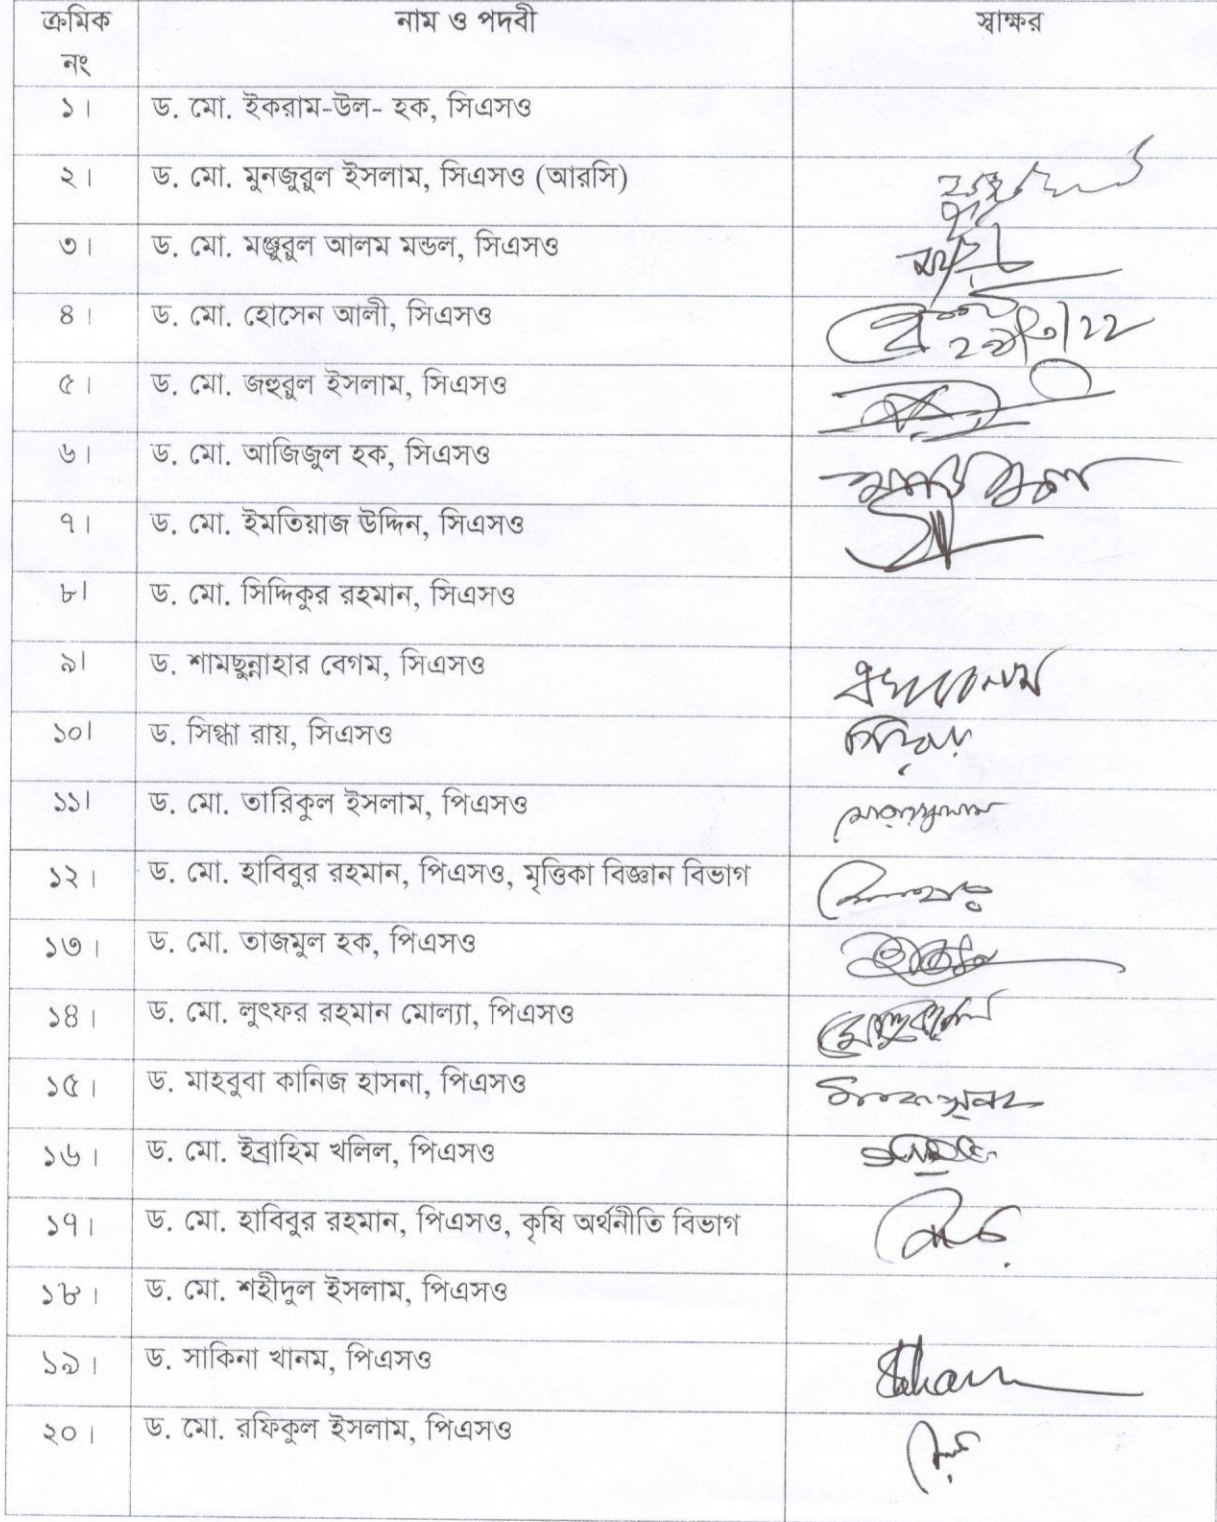 ক্রমিক নাম ও পদবী স্বাক্ষর
নং
১। ড. মো. ইকরাম-উল- হক, সিএসও
২। ড. মো. মুনজুরুল ইসলাম, সিএসও (আরসি)
৩। ড. মো. মঞ্জুরুল আলম মন্ডল, সিএসও
৪। ড. মো. হোসেন আলী, সিএসও
৫। ড. মো. জহুরুল ইসলাম, সিএসও
৬। ড. মো. আজিজুল হক, সিএসও
৭। ড. মো. ইমতিয়াজ উদ্দিন, সিএসও
৮। ড. মো. সিদ্দিকুর রহমান, সিএসও
৯। ড. শামছুন্নাহার বেগম, সিএসও
১০। ড. সিগ্ধা রায়, সিএসও
১১। ড. মো. তারিকুল ইসলাম, পিএসও
১২। ড. মো. হাবিবুর রহমান, পিএসও, মৃত্তিকা বিজ্ঞান বিভাগ
১৩। ড. মো. তাজমুল হক, পিএসও
১৪। ড. মো. লুৎফর রহমান মোল্যা, পিএসও
১৫। ড. মাহবুবা কানিজ হাসনা, পিএসও
১৬। ড. মো. ইব্রাহিম খলিল, পিএসও
১৭। ড. মো. হাবিবুর রহমান, পিএসও, কৃষি অর্থনীতি বিভাগ
১৮। ড. মো. শহীদুল ইসলাম, পিএসও
১৯। ড. সাকিনা খানম, পিএসও
২০। ড. মো. রফিকুল ইসলাম, পিএসও